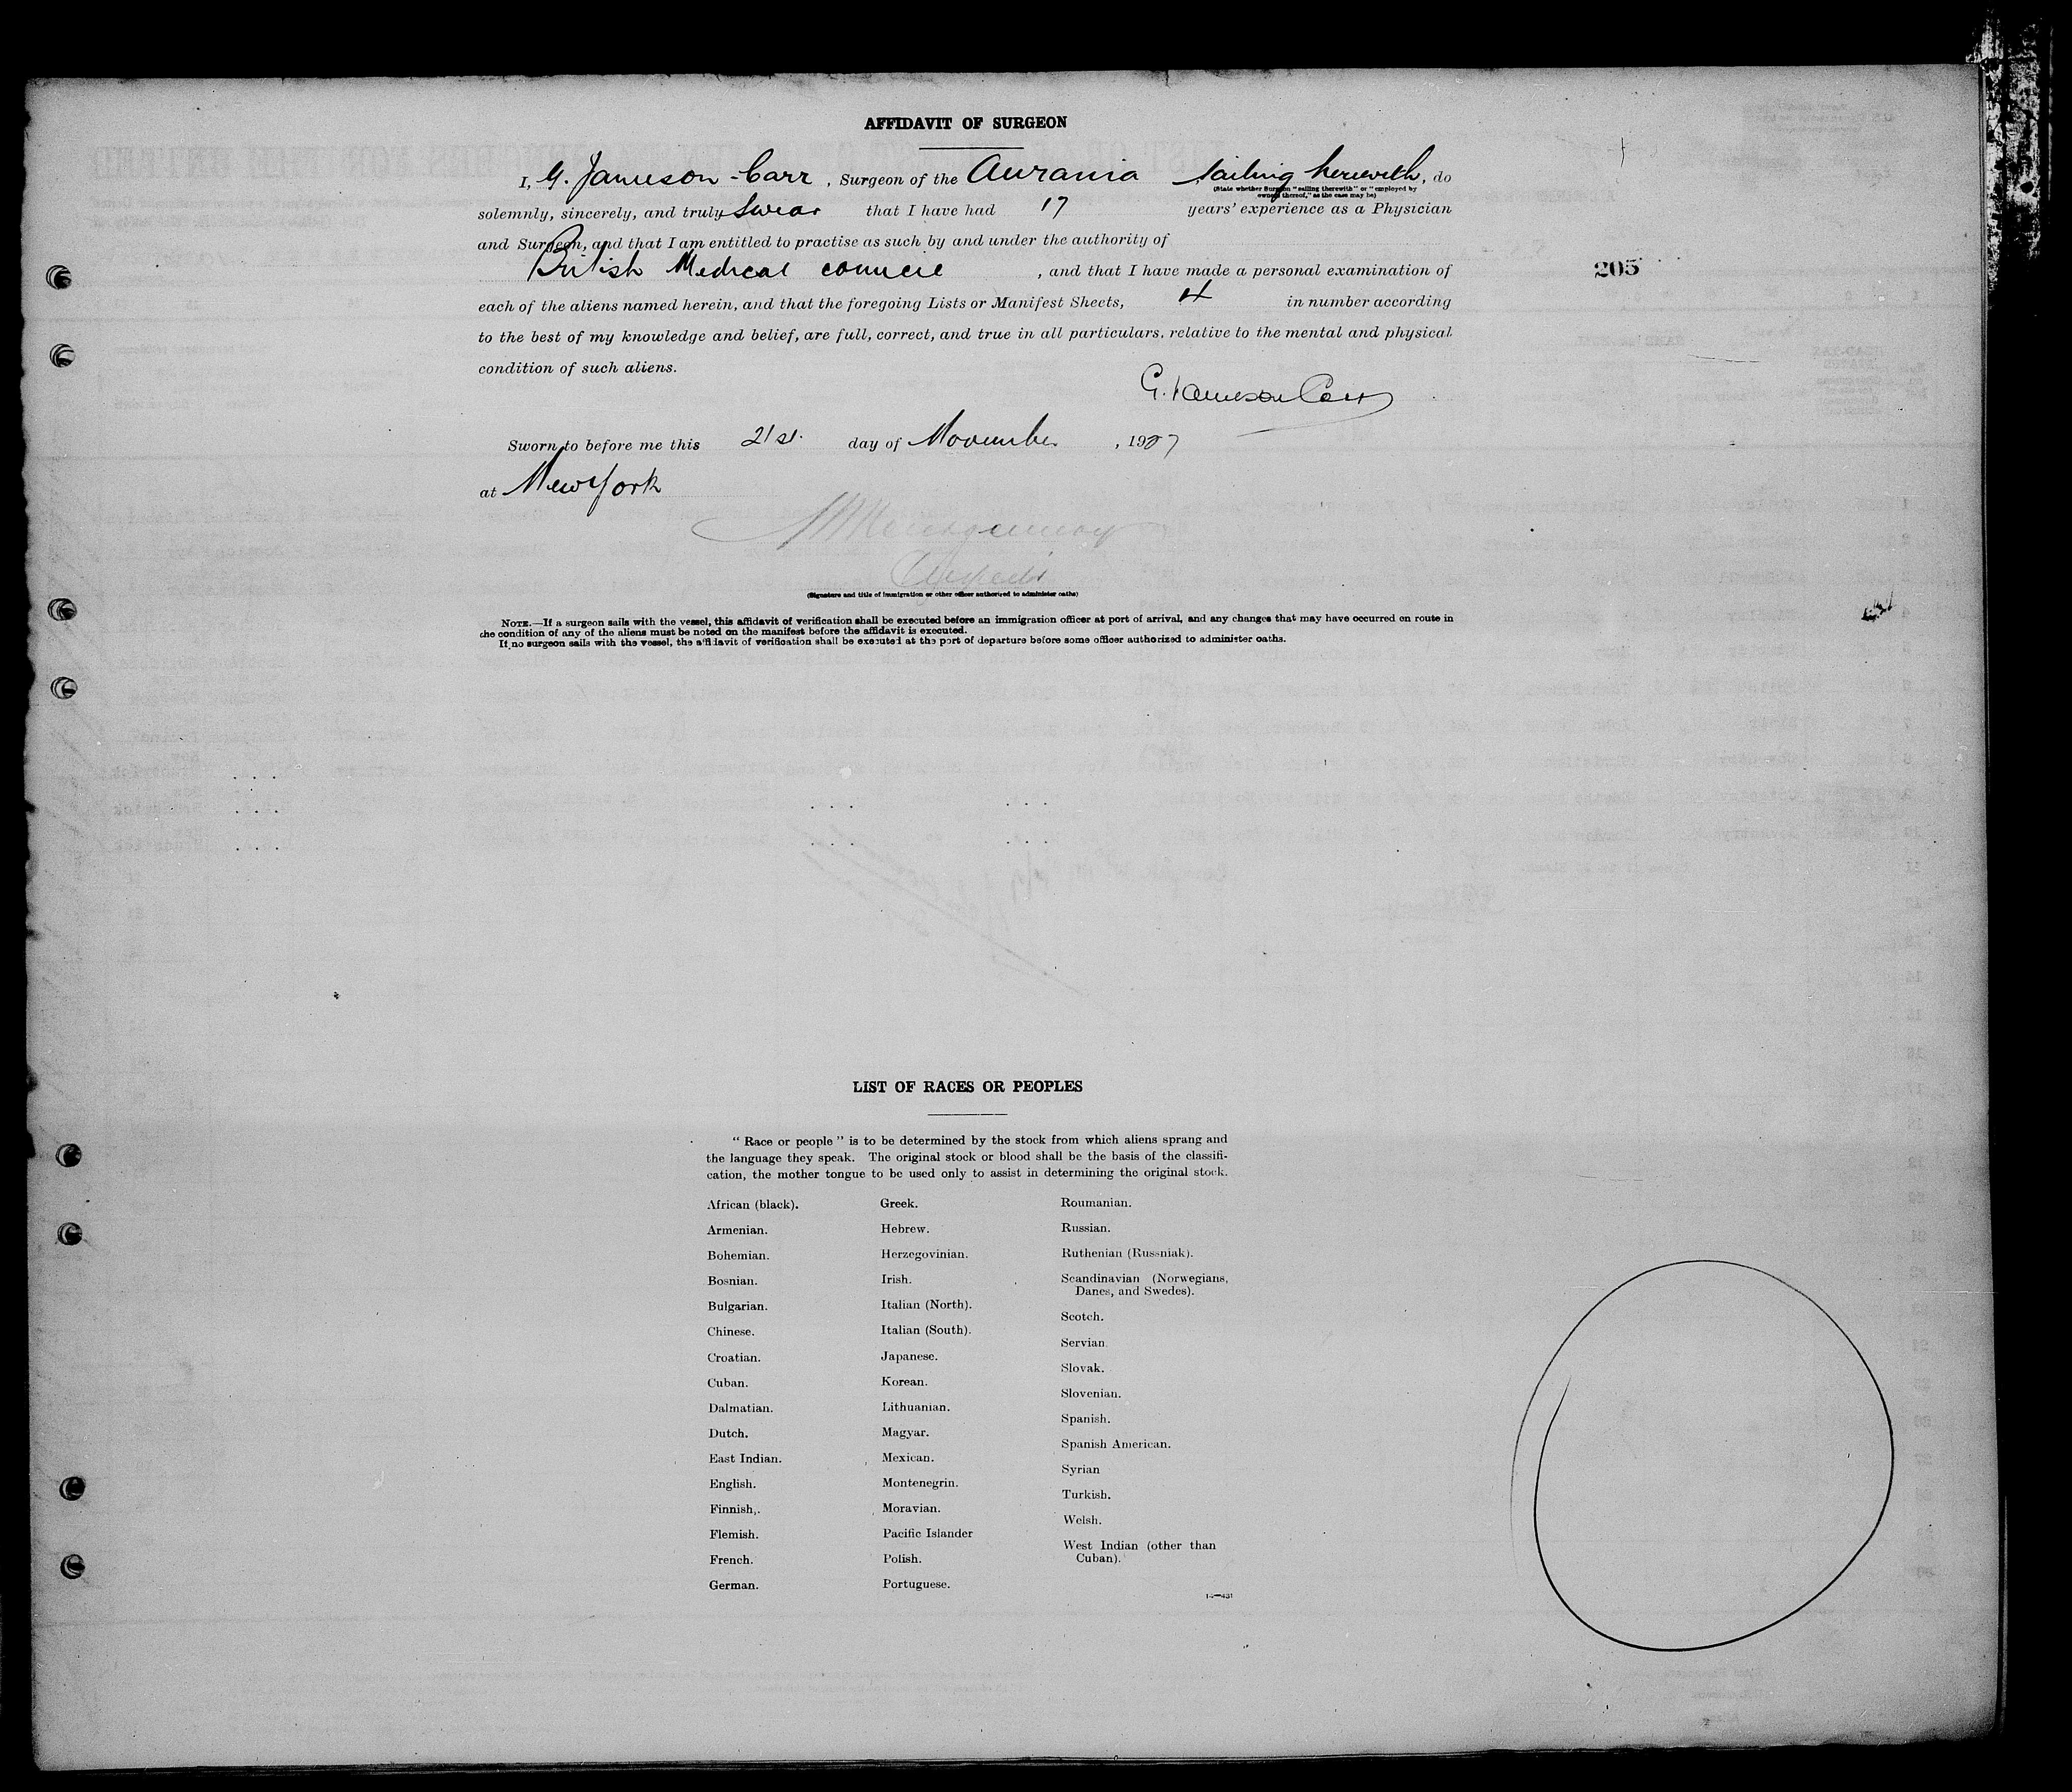 AFFIDAVIT OF SURGEON
I, G. Jameson-Carr, Surgeon of the Aurania sailing herewith, do
(State whether Surgeon "sailing therewith" or "employed by
owners thereof," as the case may be)
solemnly, sincerely, and truly swear that I have had 17 years' experience as a Physician
and Surgeon, and that I am entitled to practise as such by and under the authority of
British Medical council, and that I have made a personal examination of
205
each of the aliens named herein, and that the foregoing Lists or Manifest Sheets, 4 in number according
to the best of my knowledge and belief, are full, correct, and true in all particulars, relative to the mental and physical
condition of such aliens.
G. Jameson Carr
Sworn to before me this 21st. day of November, 1927
at New York
(Signature and title of immigration or other officer authorized to administer oaths)
NOTE.—If a surgeon sails with the vessel, this affidavit of verification shall be executed before an immigration officer at port of arrival, and any changes that may have occurred on route in
the condition of any of the aliens must be noted on the manifest before the affidavit is executed.
If no surgeon sails with the vessel, the affidavit of verification shall be executed at the port of departure before some officer authorized to administer oaths.
LIST OF RACES OR PEOPLES
" Race or people " is to be determined by the stock from which aliens sprang and
the language they speak. The original stock or blood shall be the basis of the classifi-
cation, the mother tongue to be used only to assist in determining the original stock.
African (black).
Armenian.
Bohemian.
Bosnian.
Bulgarian.
Chinese.
Croatian.
Cuban.
Dalmatian.
Dutch.
East Indian.
English.
Finnish.
Flemish.
French.
German.
Greek.
Hebrew.
Herzegovinian.
Irish.
Italian (North).
Italian (South).
Japanese.
Korean.
Lithuanian.
Magyar.
Mexican.
Montenegrin.
Moravian.
Pacific Islander
Polish.
Portuguese.
Roumanian.
Russian.
Ruthenian (Russniak).
Scandinavian (Norwegians,
Danes, and Swedes).
Scotch.
Servian.
Slovak.
Slovenian.
Spanish.
Spanish American.
Syrian
Turkish.
Welsh.
West Indian (other than
Cuban).